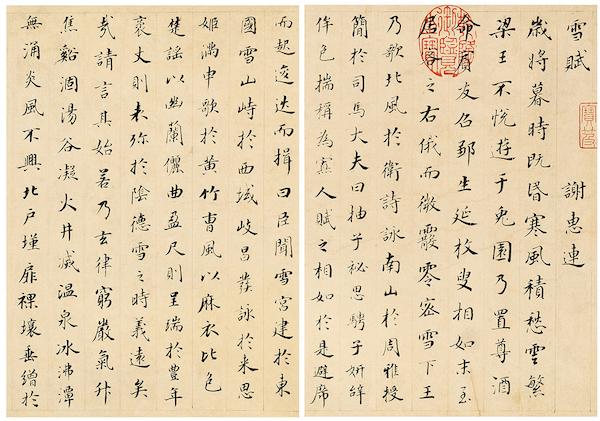 雪賦 謝惠連
歲將暮時既昏寒風積愁雲繁
梁王不悅遊于兔園乃置尊酒
命賓友召鄒生延枚叟相如末至
居客之右俄而微霰零密雪下王
乃歌北風於衛詩詠南山於周雅授
簡於司馬大夫曰抽子祕思騁子妍辭
侔色揣稱為寡人賦之相如於是避席
而起逡而揖曰臣聞雪宮建於東
國雪山峙於西域岐昌發詠於來思
姬滿申歌於黃竹曹風以麻衣比色
楚謠以幽蘭儷曲盈尺則呈瑞於豐年
袤丈則表沴於陰德雪之時義遠矣
哉請言其始若乃玄律窮嚴氣升
焦谿涸湯谷凝火井滅溫泉冰沸潭
無涌炎風不興北戶墐扉裸壤垂繒於